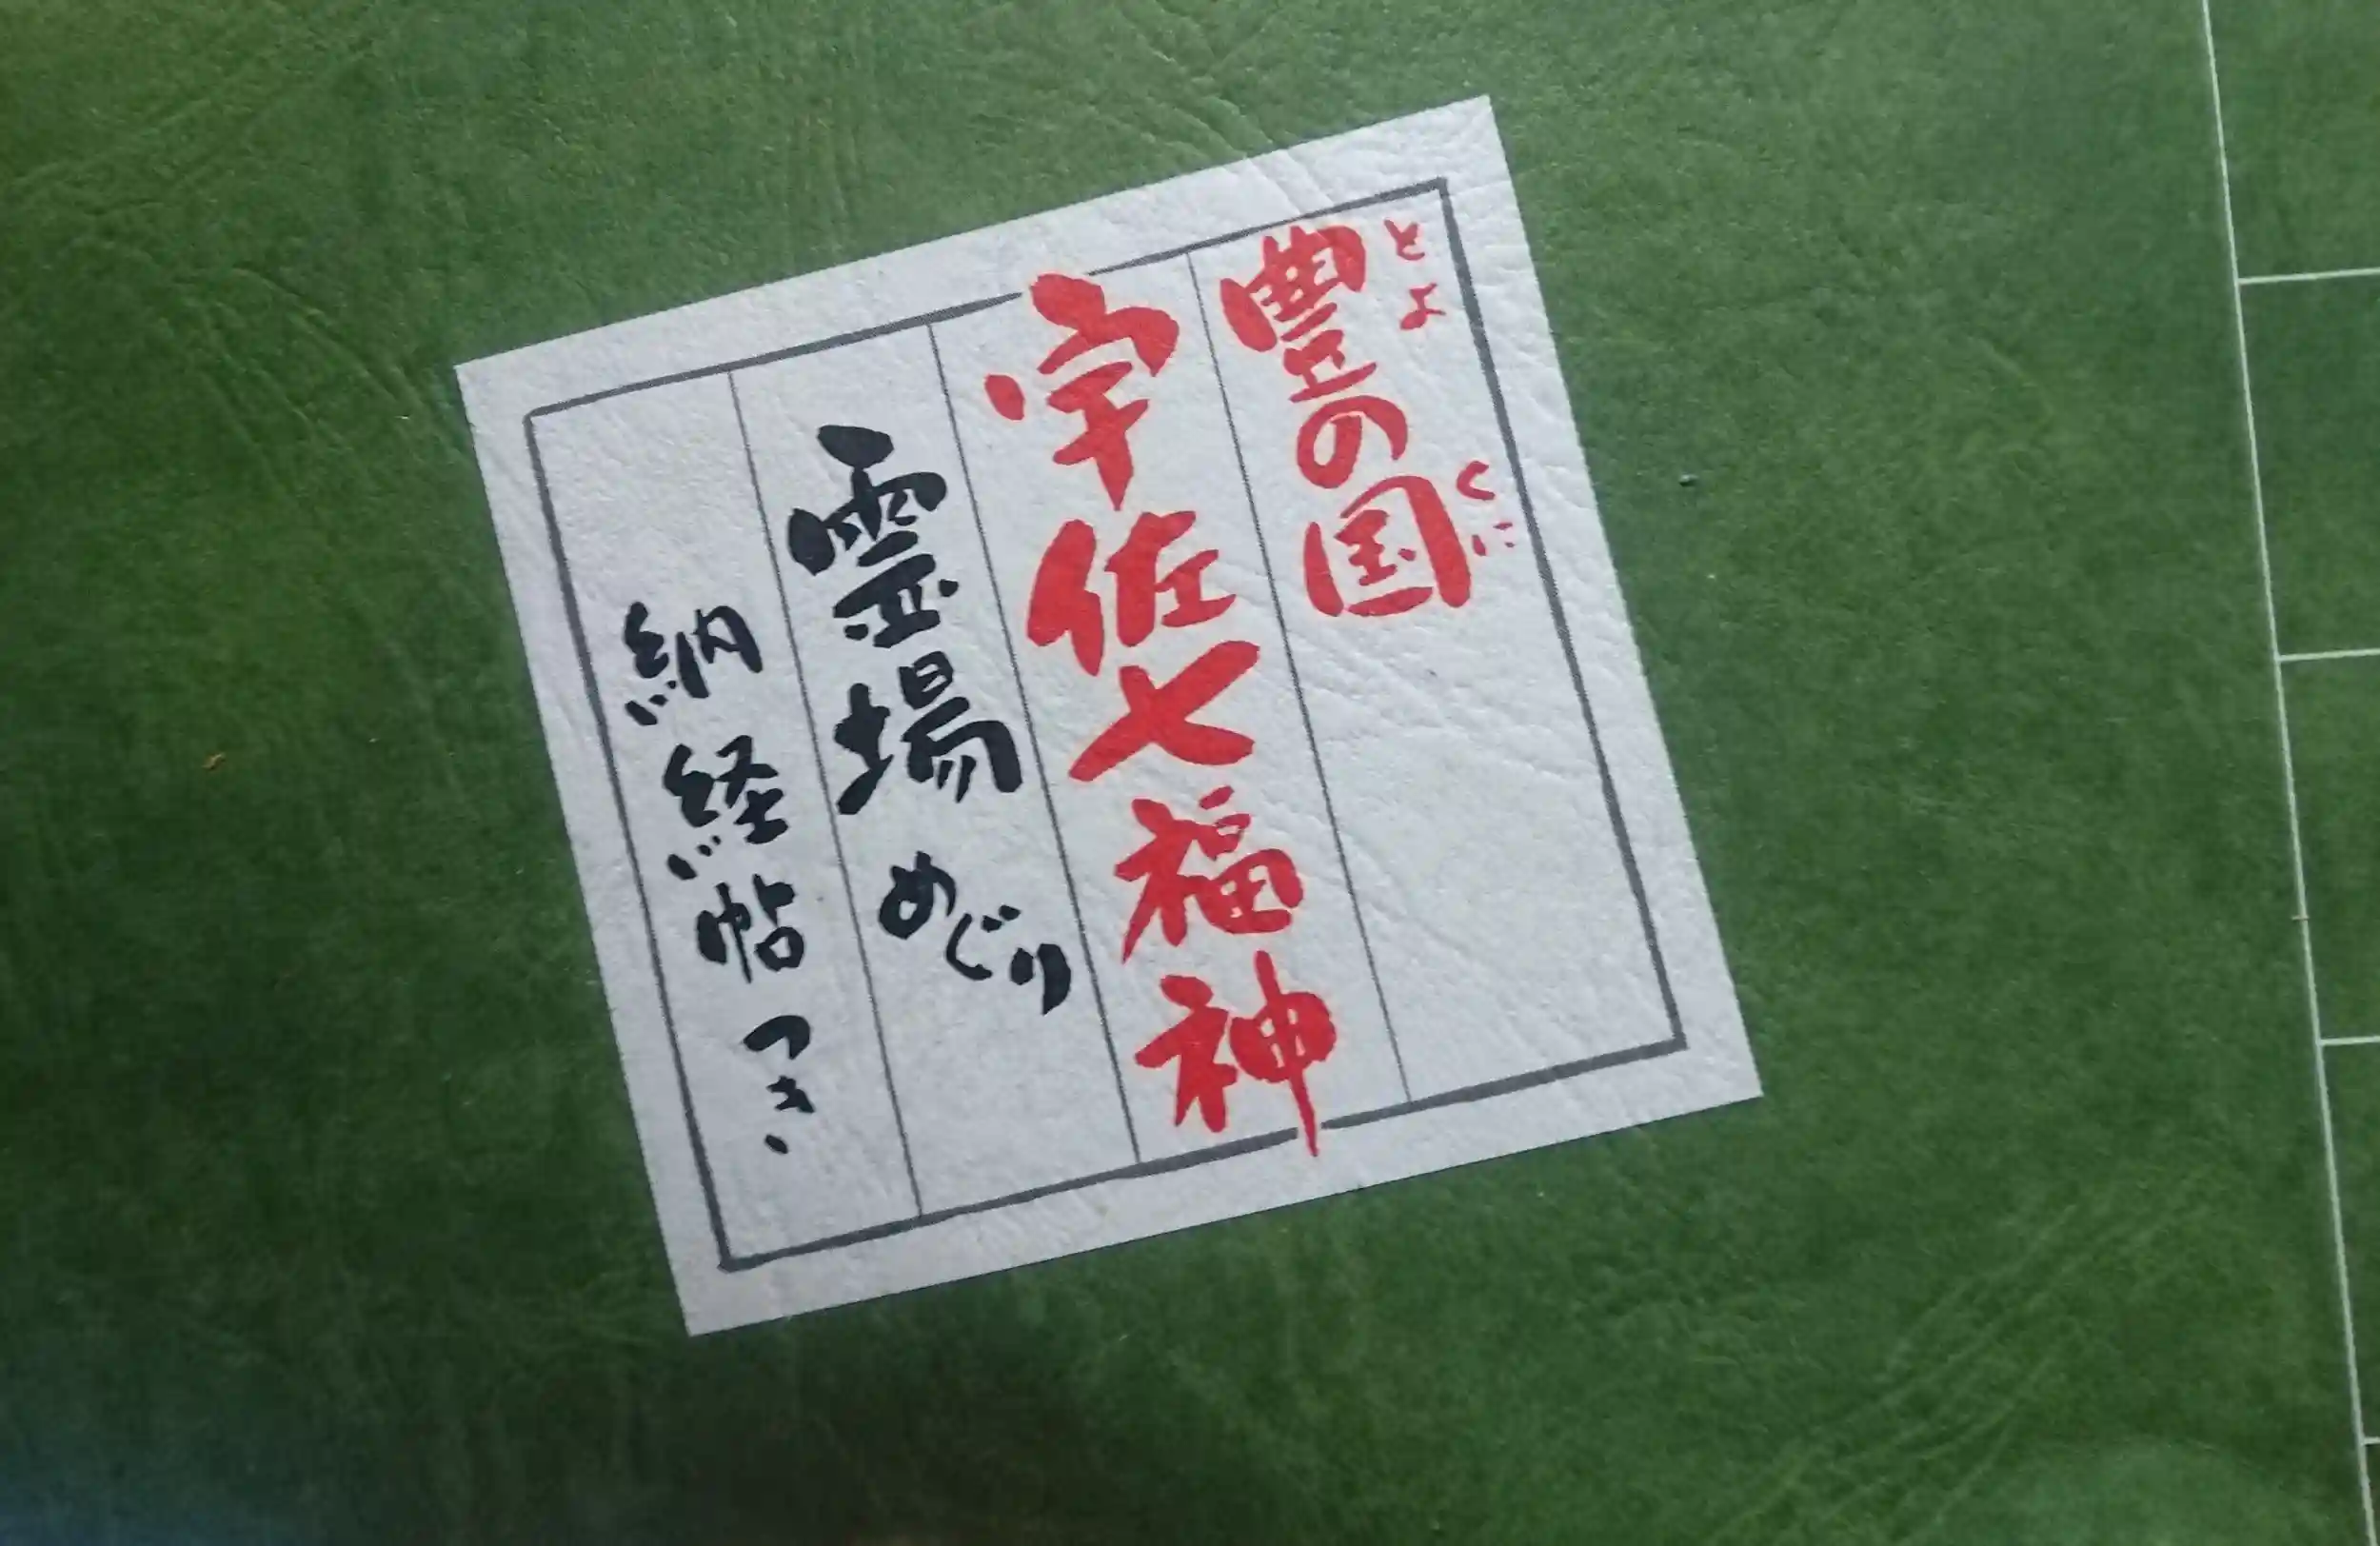 豊の国
とよ
くに
宇佐七福神
霊場めぐり
納経帖つき